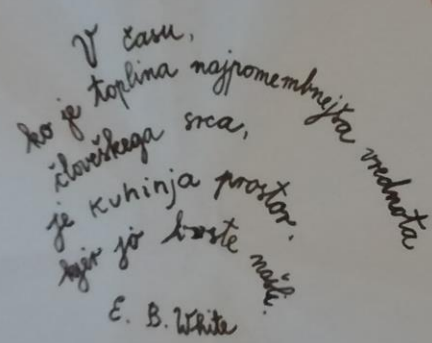 V času,
ko je toplina najpomembnejša vrednota
človeškega srca,
je kuhinja prostor,
kjer jo boste našli.
E. B. White